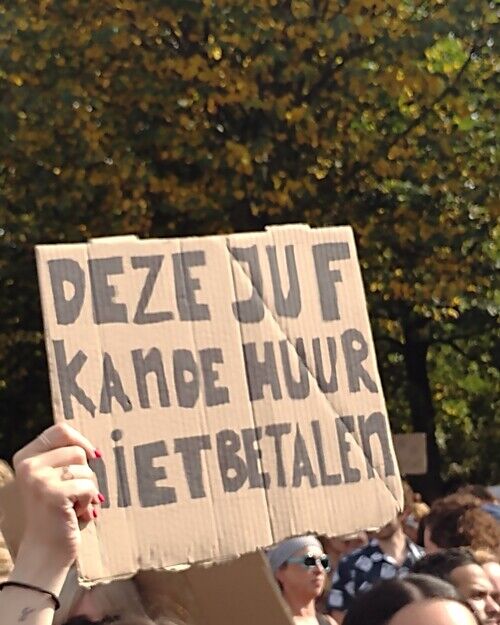 DEZE JUF
KAN DE HUUR
NIET BETALEN